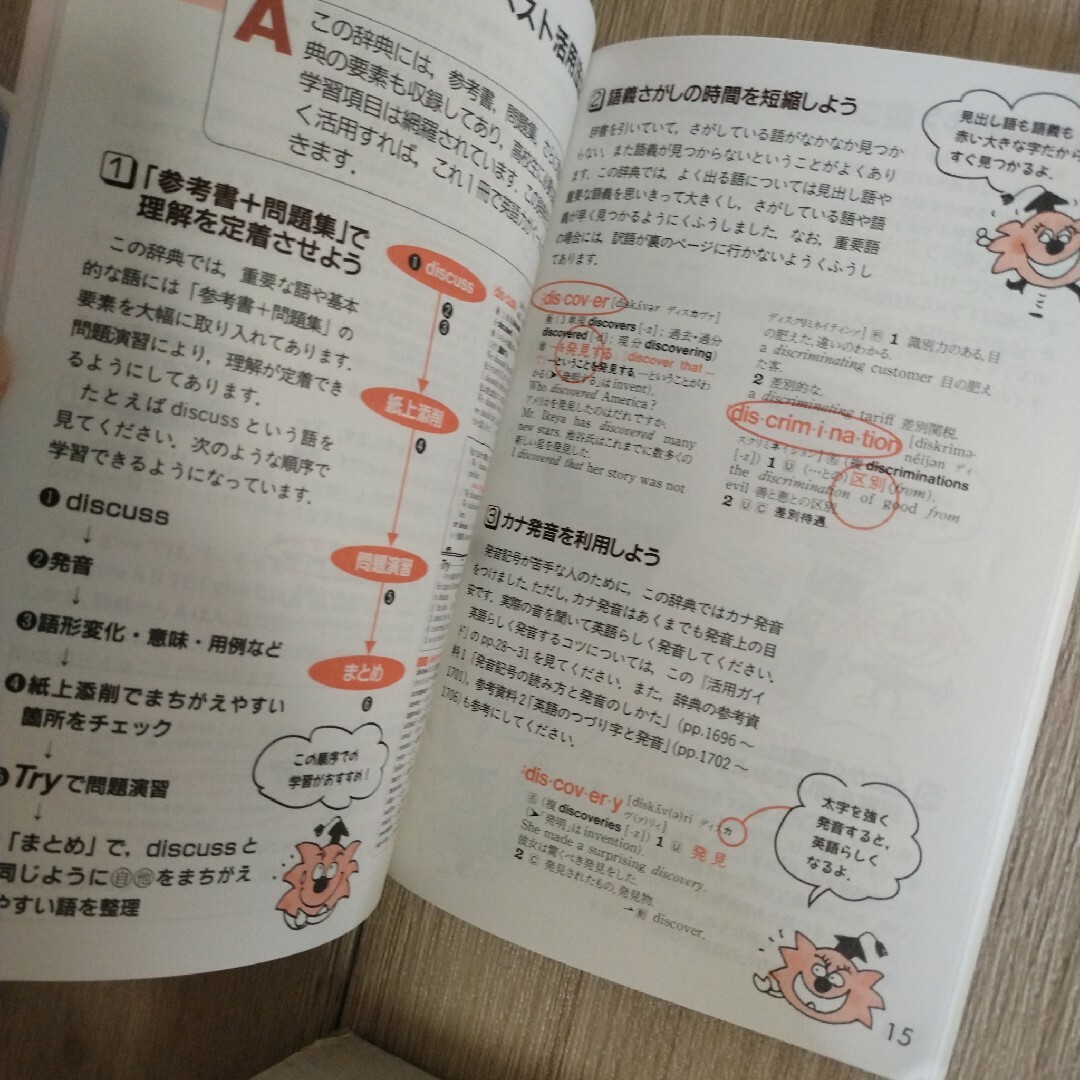 ベスト活用
A
この辞典には，参考書，問題集，さらに
典の要素も収録してあり，高校生に必要
学習項目は網羅されています．この辞典
く活用すれば，これ1冊で英語力が
きます．
1 「参考書＋問題集」で
理解を定着させよう
この辞典では，重要な語や基本
的な語には「参考書＋問題集」の
要素を大幅に取り入れてあります．
問題演習により，理解が定着でき
るようにしてあります．
たとえば discuss という語を
見てください．次のような順序で
学習できるようになっています．
❶ discuss
↓
❷発音
↓
❸語形変化・意味・用例など
↓
❹紙上添削でまちがえやすい
箇所をチェック
↓
Tryで問題演習
↓
「まとめ」で，discussと
同じように㊀㊁をまちがえ
やすい語を整理
❶ discuss
❷
❸
紙上添削
❹
問題演習
❺
まとめ
❻
この順序での
学習がおすすめ！
2 語義さがしの時間を短縮しよう
辞書を引いていて，さがしている語がなかなか見つか
らない，また語義が見つからないということがよくあり
ます．この辞典では，よく出る語については見出し語や
重要な語義を思いきって大きくし，さがしている語や語
義が早く見つかるようにくふうしました．なお，重要語
の場合には，訳語が裏のページに行かないようくふうし
てあります．
見出し語も語義も
赤い大きな字だから
すぐ見つかるよ．
:dis·cov·er [diskʌ́vər ディスカヴァ]
動 (3単現 discovers [-z]；過去・過分
discovered [-d]；現分 discovering)
他 …を発見する；discover that …
で …ということを発見する，…ということがわ
かる(➤「発明する」は invent)．
Who discovered America?
アメリカを発見したのはだれですか．
Mr. Ikeya has discovered many
new stars. 池谷氏はこれまでに数多くの
新しい星を発見した．
I discovered that her story was not
ディスクリミネイティング] 形 1 識別力のある，目
の肥えた，違いのわかる．
a discriminating customer 目の肥え
た客．
2 差別的な．
a discriminating tariff 差別関税．
dis·crim·i·na·tion [diskrìmə-
néiʃən ディ
スクリミネイション] 名 (複 discriminations
[-z]) 1 U (…との) 区別 (from)．
the discrimination of good from
evil 善と悪との区別．
2 U C 差別待遇．
3 カナ発音を利用しよう
発音記号が苦手な人のために，この辞典ではカナ発音
をつけました．ただし，カナ発音はあくまでも発音上の目
安です．実際の音を聞いて英語らしく発音してください．
英語らしく発音するコツについては，この『活用ガイ
ド』の pp.28～31 を見てください．また，辞典の参考資
料1「発音記号の読み方と発音のしかた」(pp.1696～
1701)，参考資料2「英語のつづり字と発音」(pp.1702～
1706)も参考にしてください．
:dis·cov·er·y [diskʌ́v(ə)ri ディスカ
ヴ(ァ)リィ]
名 (複 discoveries [-z]) 1 U 発見
(➤「発明」は invention)．
She made a surprising discovery.
彼女は驚くべき発見をした．
2 C 発見されたもの，発見物．
→ 動 discover.
太字を強く
発音すると，
英語らしく
なるよ．
15